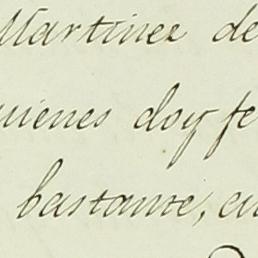 Martinez de
quienes doy fe
bastante, en